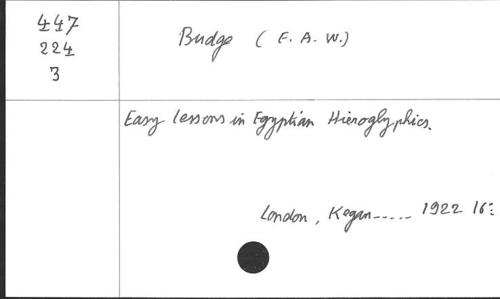 447
224
3
Budge (E. A. W.)
Easy lessons in Egyptian Hieroglyphics.
London, Kegan----- 1922 16: